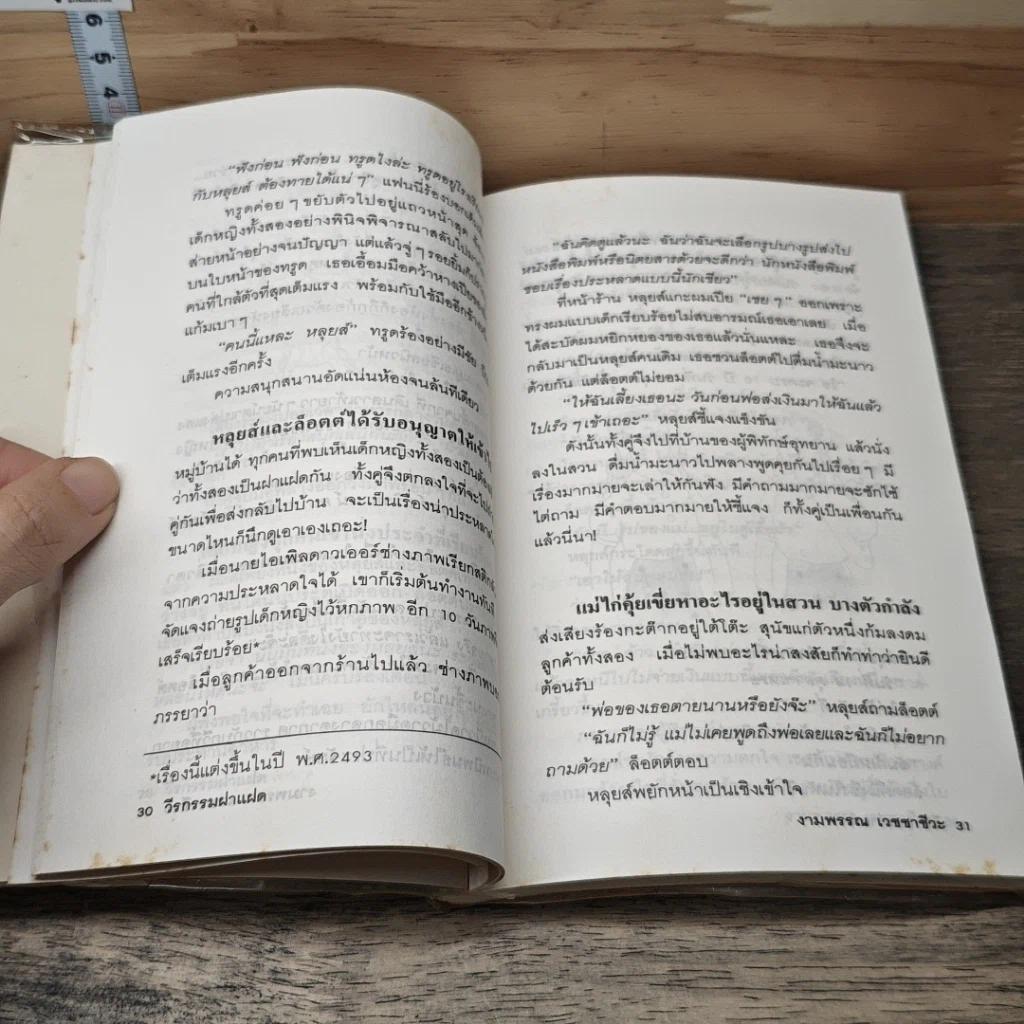 6
5
4
"ฟังก่อน ฟังก่อน ทรูดไงล่ะ ทรูดอยู่โรงเรียน
กับหลุยส์ ต้องทายได้แน่ ๆ" แฟนนี่ร้องบอกเต็ม
ทรูดค่อย ๆ ขยับตัวไปอยู่แถวหน้าสุด
เด็กหญิงทั้งสองอย่างพินิจพิจารณาสลับไปมา
ส่ายหน้าอย่างจนปัญญา แต่แล้วจู่ ๆ รอยยิ้มก็
บนใบหน้าของทรูด เธอเอื้อมมือคว้าหางเปียของ
คนที่ใกล้ตัวที่สุดเต็มแรง พร้อมกับใช้มืออีกข้าง
แก้มเบา ๆ
"คนนี้แหละ หลุยส์" ทรูดร้องอย่างมีชัย
เต็มแรงอีกครั้ง
ความสนุกสนานอัดแน่นห้องจนล้นทีเดียว
หลุยส์และล็อตต์ได้รับอนุญาตให้เข้า
หมู่บ้านได้ ทุกคนที่พบเห็นเด็กหญิงทั้งสองเป็นต้อง
ว่าทั้งสองเป็นฝาแฝดกัน ทั้งคู่จึงตกลงใจที่จะไป
คู่กันเพื่อส่งกลับไปบ้าน จะเป็นเรื่องน่าประหลาด
ขนาดไหนก็นึกดูเอาเองเถอะ!
เมื่อนายไอเพิลดาวเออร์ช่างภาพเรียกสติ
จากความประหลาดใจได้ เขาก็เริ่มต้นทำงานทันที
จัดแจงถ่ายรูปเด็กหญิงไว้หกภาพ อีก 10 วันภาพ
เสร็จเรียบร้อย*
เมื่อลูกค้าออกจากร้านไปแล้ว ช่างภาพ
ภรรยาว่า
*เรื่องนี้แต่งขึ้นในปี พ.ศ.2493
30 วีรกรรมฝาแฝด
"ฉันคิดดูแล้วนะ ฉันว่าฉันจะเลือกรูปบางรูปส่งไป
หนังสือพิมพ์หรือนิตยสารด้วยจะดีกว่า นักหนังสือพิมพ์
ชอบเรื่องประหลาดแบบนี้นักเชียว"
ที่หน้าร้าน หลุยส์แกะผมเปีย "เชย ๆ" ออกเพราะ
ทรงผมแบบเด็กเรียบร้อยไม่สบอารมณ์เธอเอาเลย เมื่อ
ได้สะบัดผมหยิกหยองของเธอแล้วนั่นแหละ เธอจึงจะ
กลับมาเป็นหลุยส์คนเดิม เธอชวนล็อตต์ไปดื่มน้ำมะนาว
ด้วยกัน แต่ล็อตต์ไม่ยอม
"ให้ฉันเลี้ยงเธอนะ วันก่อนพ่อส่งเงินมาให้ฉันแล้ว
ไปเร็ว ๆ เข้าเถอะ" หลุยส์ชี้แจงแข็งขัน
ดังนั้นทั้งคู่จึงไปที่บ้านของผู้พิทักษ์อุทยาน แล้วนั่ง
ลงในสวน ดื่มน้ำมะนาวไปพลางพูดคุยกันไปเรื่อย ๆ มี
เรื่องมากมายจะเล่าให้กันฟัง มีคำถามมากมายจะซักไซ้
ไต่ถาม มีคำตอบมากมายให้ชี้แจง ก็ทั้งคู่เป็นเพื่อนกัน
แล้วนี่นา!
แม่ไก่คุ้ยเขี่ยหาอะไรอยู่ในสวน บางตัวกำลัง
ส่งเสียงร้องกะต๊ากอยู่ใต้โต๊ะ สุนัขแก่ตัวหนึ่งก้มลงดม
ลูกค้าทั้งสอง เมื่อไม่พบอะไรน่าสงสัยก็ทำท่าว่ายินดี
ต้อนรับ
"พ่อของเธอตายนานหรือยังจ๊ะ" หลุยส์ถามล็อตต์
"ฉันก็ไม่รู้ แม่ไม่เคยพูดถึงพ่อเลยและฉันก็ไม่อยาก
ถามด้วย" ล็อตต์ตอบ
หลุยส์พยักหน้าเป็นเชิงเข้าใจ
งามพรรณ เวชชาชีวะ 31